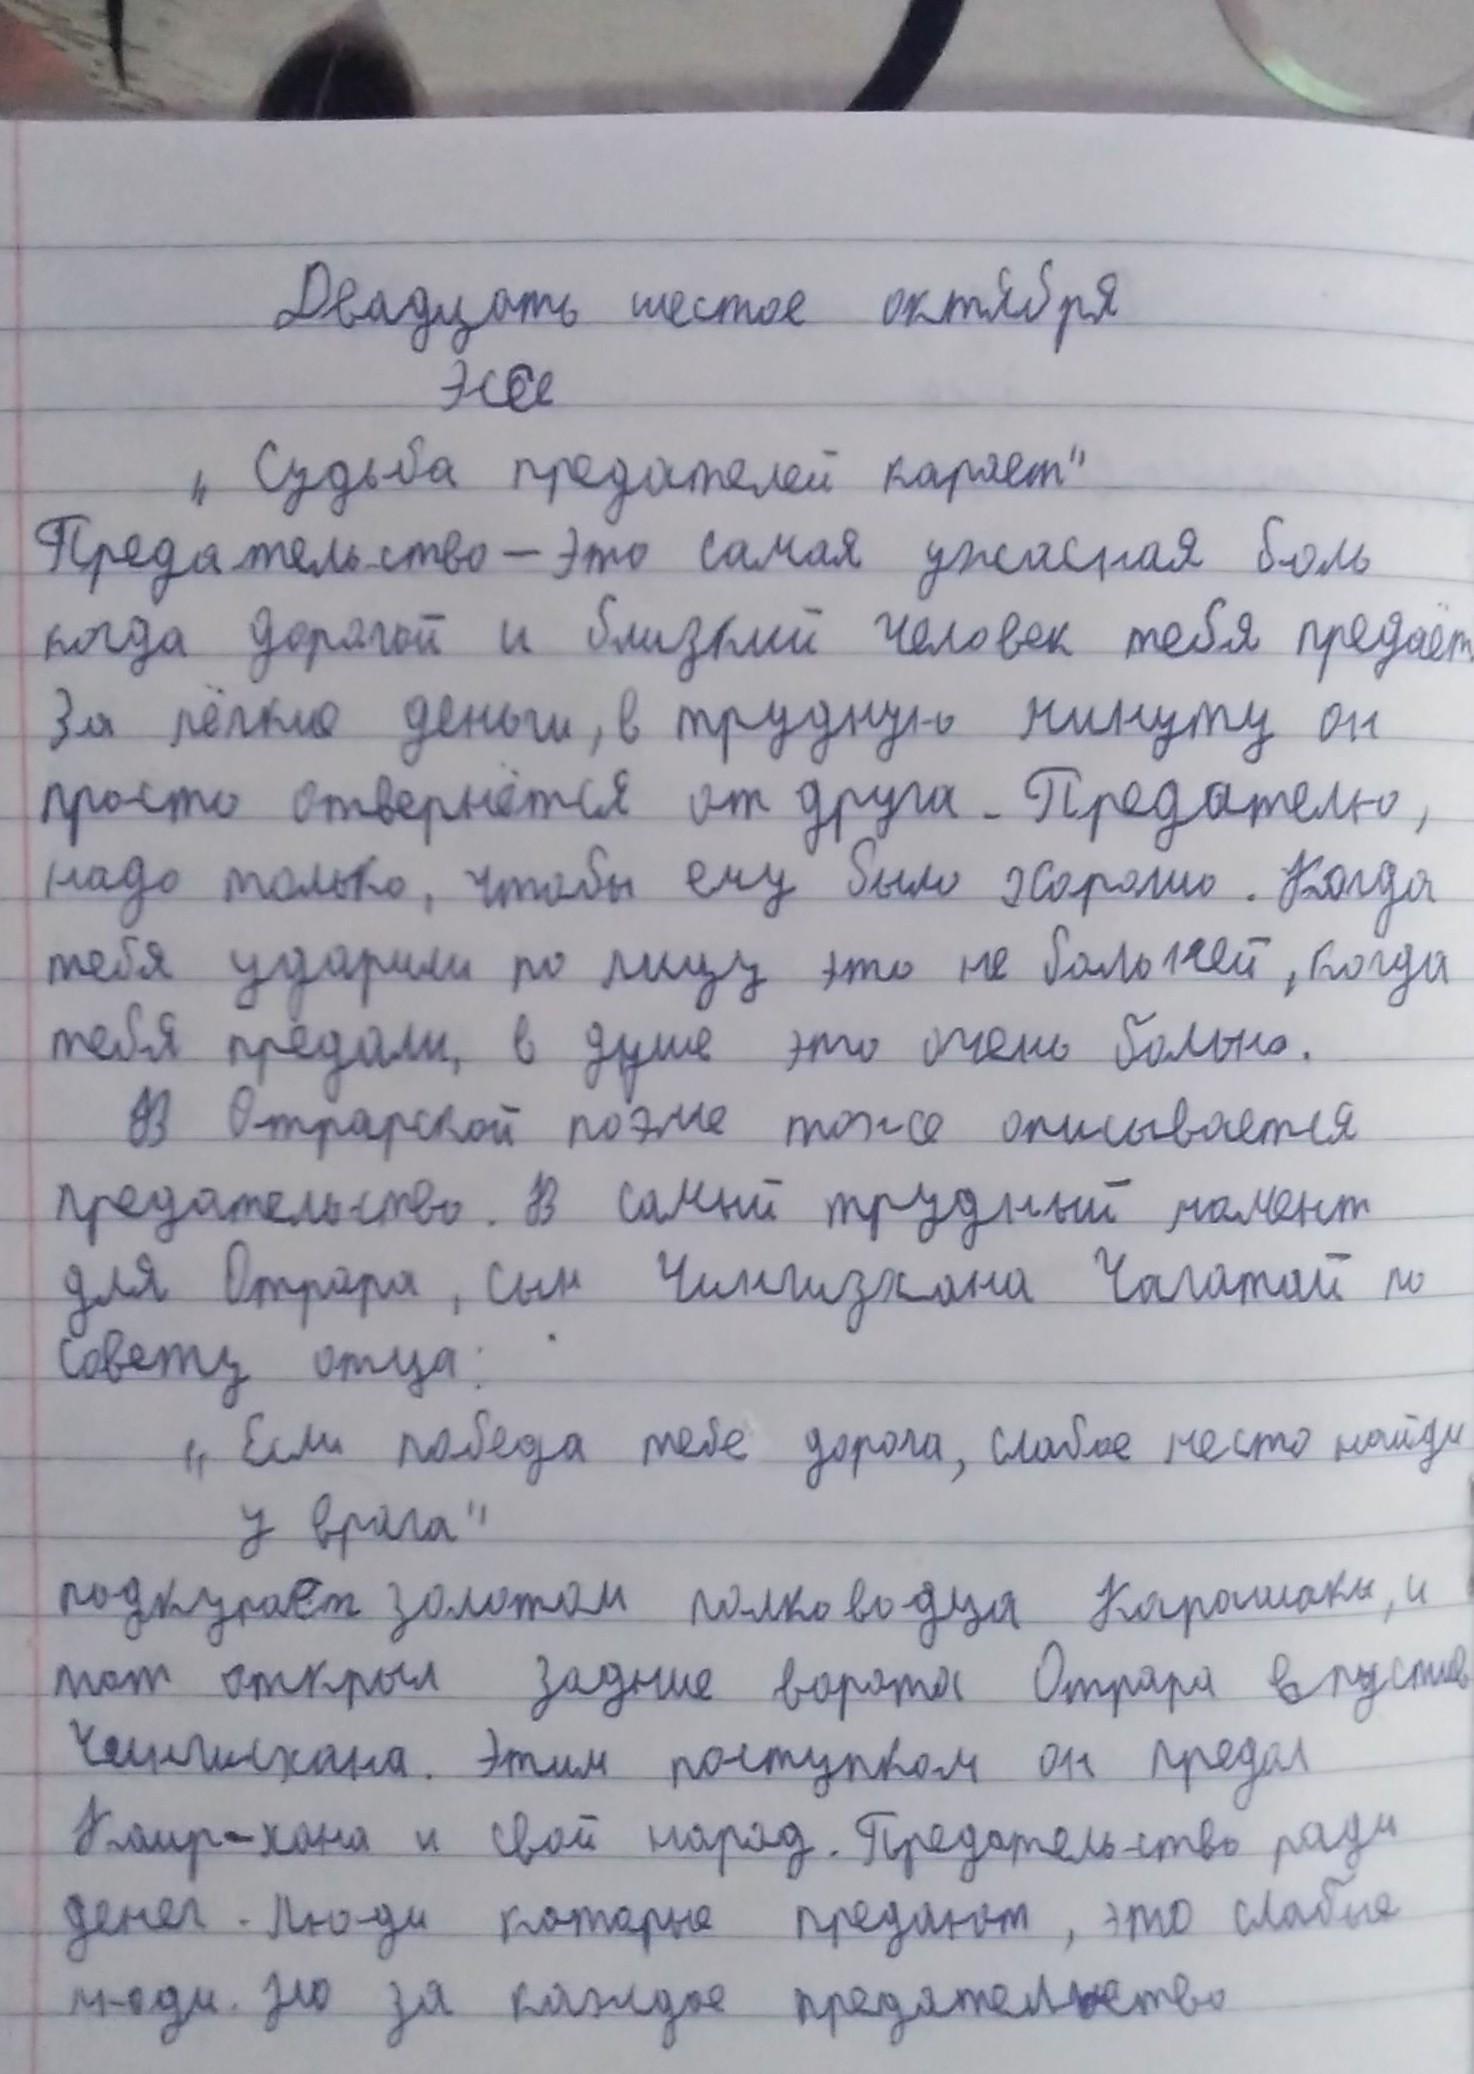 Двадцать шестое октября
Эссе
„Судьба предателей карает"
Предательство — это самая ужасная боль
когда дорогой и близкий человек тебя предаёт.
За лёгкие деньги, в трудную минуту он
просто отвернётся от друга. Предателю,
надо только, чтобы ему было хорошо. Когда
тебя ударили по лицу это не больней, когда
тебя предали, в душе это очень больно.
В Отрарской поэме тоже описывается
предательство. В самый трудный момент
для Отрара, сын Чингизхана Чагатай по
совету отца:
„Если победа тебе дорога, слабое место найди
у врага"
подкупает золотом полководца Карашокы, и
тот открыл задние ворота Отрара впустив
Чингисхана. Этим поступком он предал
Каир-хана и свой народ. Предательство ради
денег. Люди которые предают, это слабые
люди. Но за каждое предательство